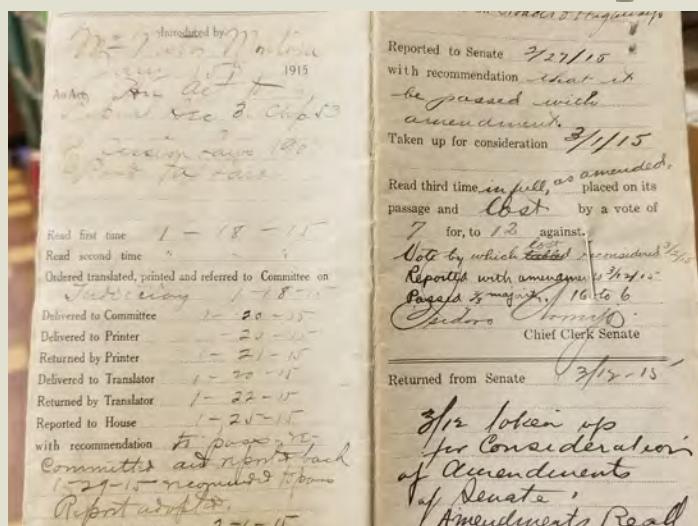 Introduced by
1915
An Act An Act to
Sec 3. Chap 53
Session Laws 190
Read first time 1 - 18 - 15
Read second time " - " - "
Ordered translated, printed and referred to Committee on
Judiciary 1-18-15
Delivered to Committee 1 - 20 - 15
Delivered to Printer - 20 - 15
Returned by Printer 1 - 21 - 15
Delivered to Translator 1 - 20 - 15
Returned by Translator 1 - 22 - 15
Reported to House 1 - 25 - 15
with recommendation to pass re-
Committed and report back
1-29-15 recommended to pass
Report adopted.
2-1-15
Roads & Highways
Reported to Senate 2/27/15
with recommendation that it
be passed with
amendment.
Taken up for consideration 3/1/15
Read third time in full, as amended, placed on its
passage and lost by a vote of
7 for, to 12 against.
Vote by which lost reconsidered 3/2/15
Reported with amendments 3/12/15
Passed 2/3 majority. 16 to 6
Isidoro Armijo
Chief Clerk Senate
Returned from Senate 3/12-15
3/12 taken up
for Consideration
of Amendments
of Senate.
Amendments Read